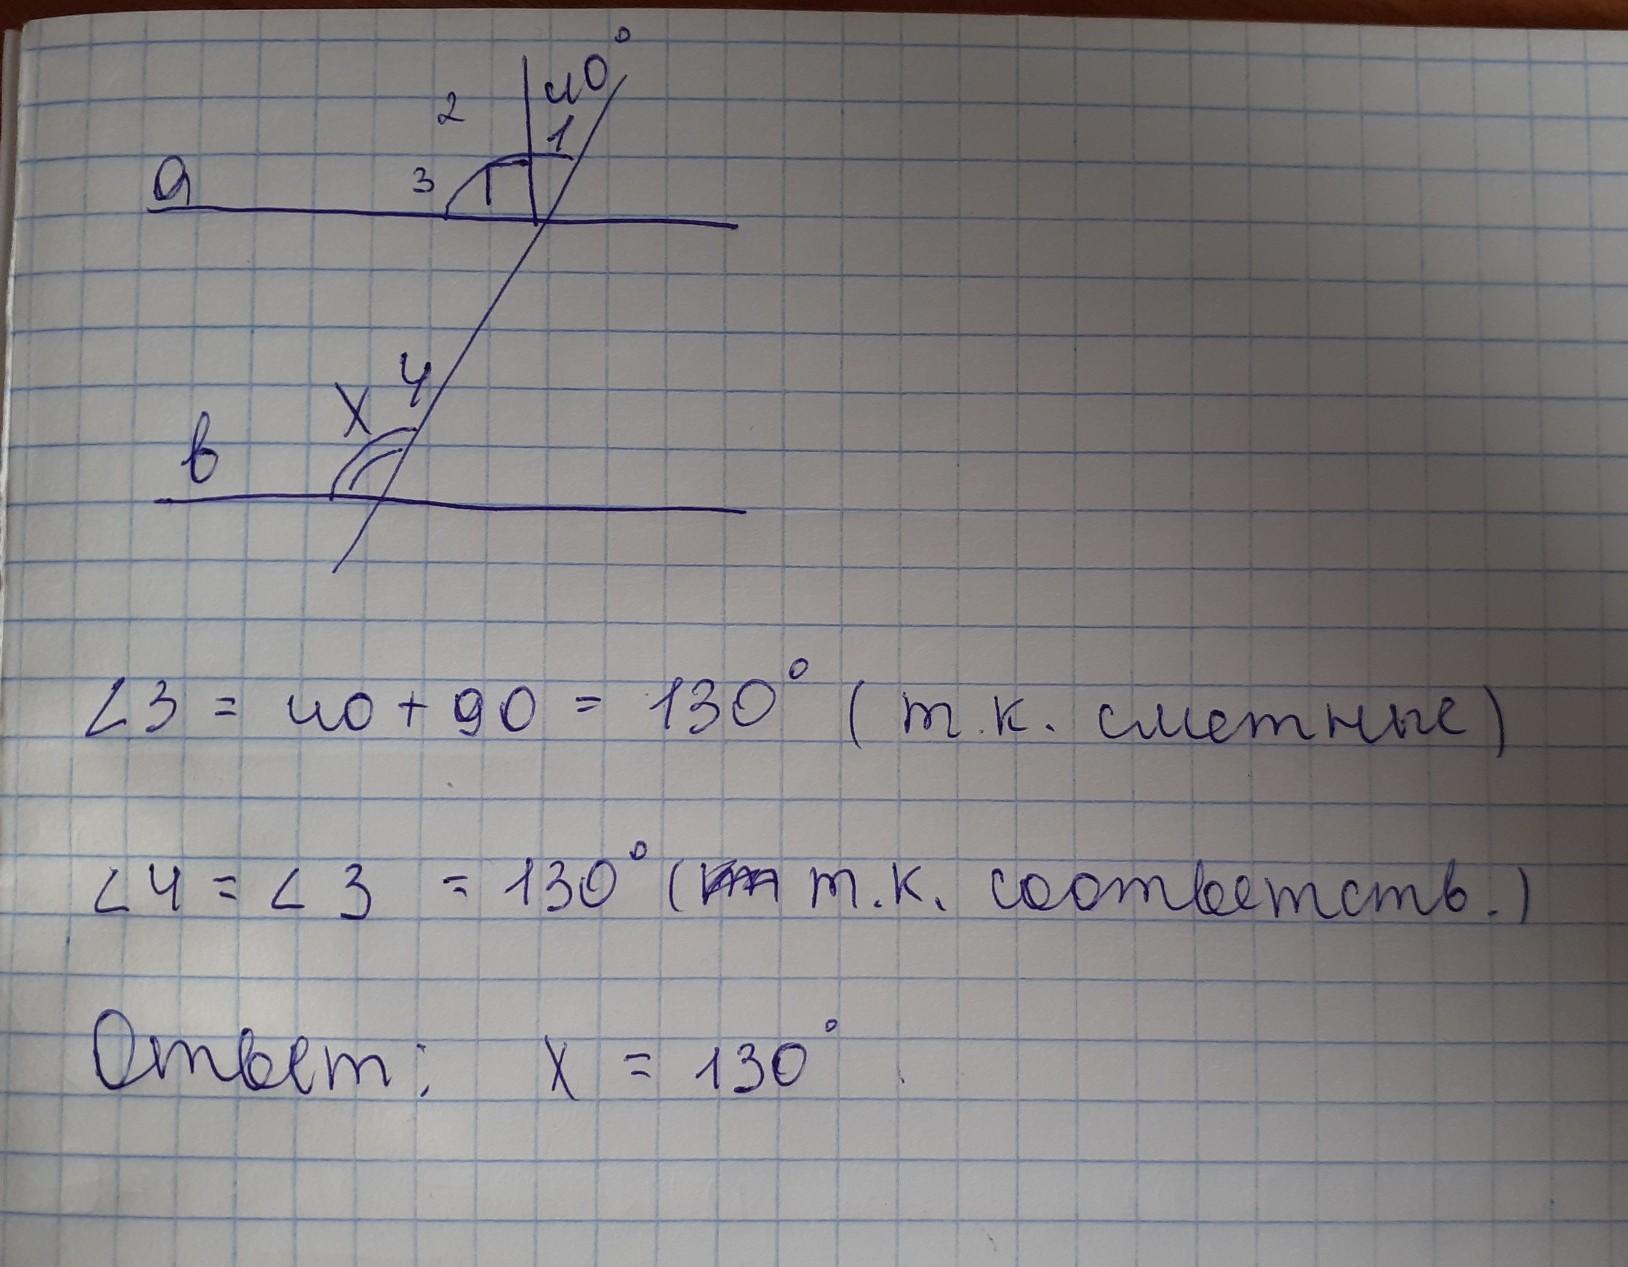 40°
2
1
а
3
х 4
в
∠3 = 40 + 90 = 130° (т.к. сметные)
∠4 = ∠3 = 130° (т.к. соответств.)
Ответ: х = 130°